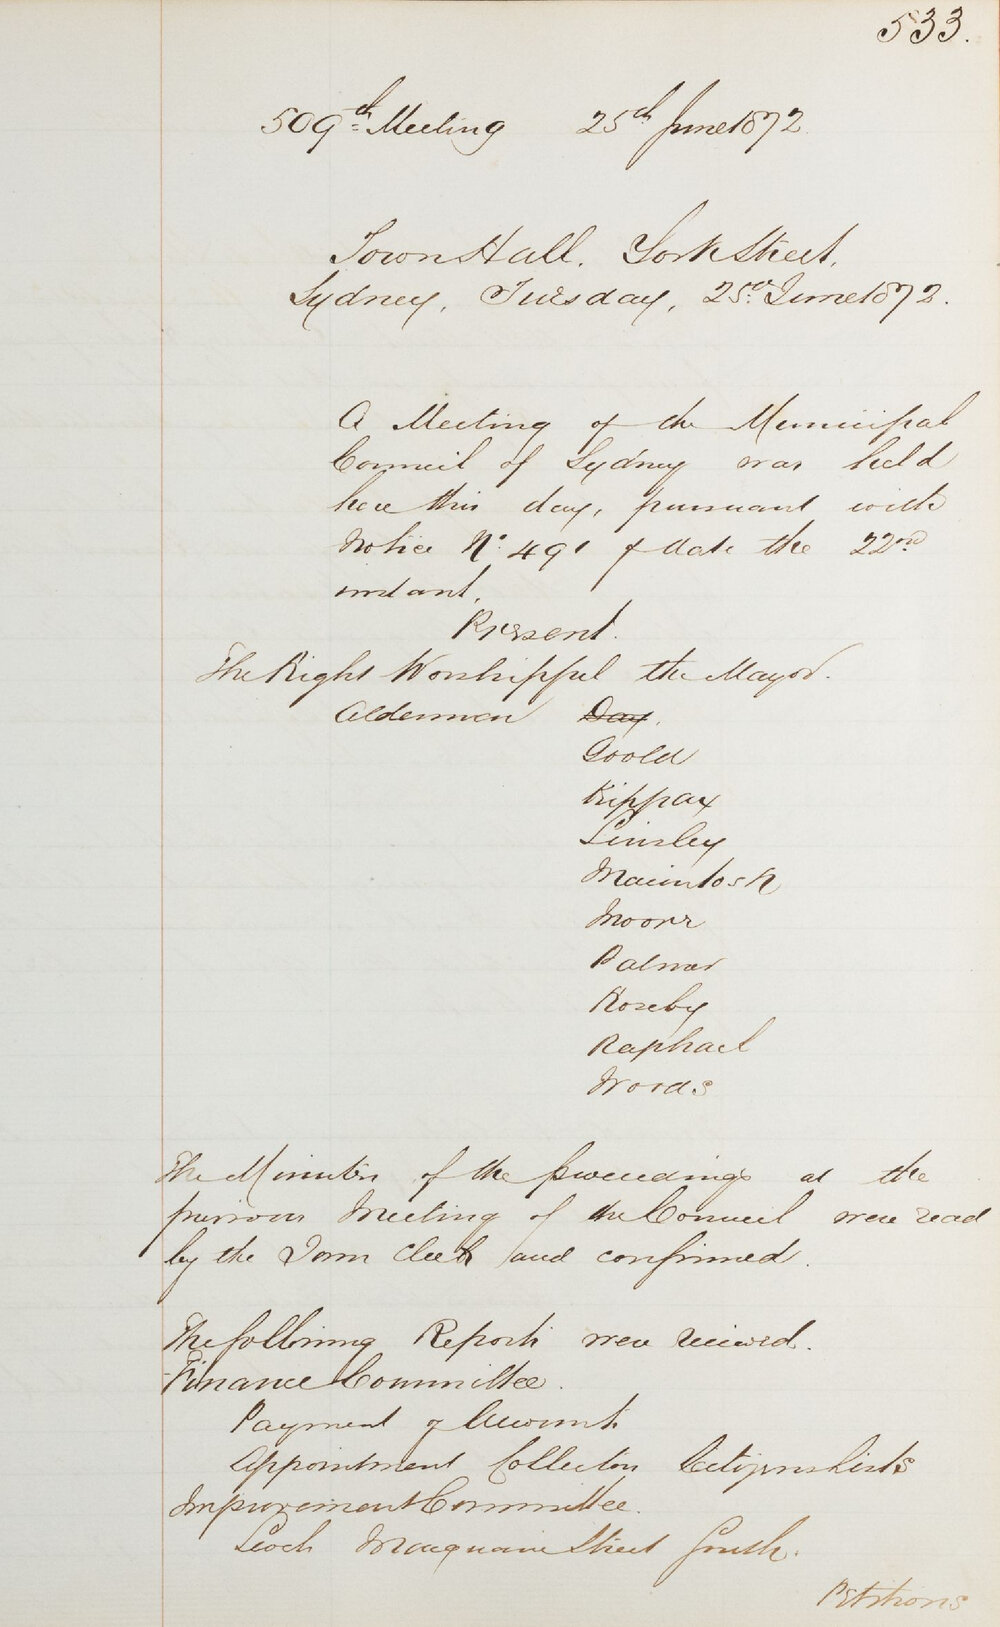 533.
509th Meeting 25th June 1872
Town Hall. York Street,
Sydney, Tuesday, 25th June 1872.
A Meeting of the Municipal
Council of Sydney was held
here this day, pursuant with
Notice No. 491 of date the 22nd
instant.
Present.
The Right Worshipful the Mayor.
Aldermen Day.
Goold
Kippax
Linsley
Macintosh
Moore
Palmer
Roseby
Raphael
Woods
The Minutes of the proceedings at the
previous Meeting of the Council were read
by the Town Clerk and confirmed.
The following Reports were received.
Finance Committee.
Payment of Accounts
Appointment Collectors Citizens Lists
Improvement Committee.
Macquarie Street South.
Petitions